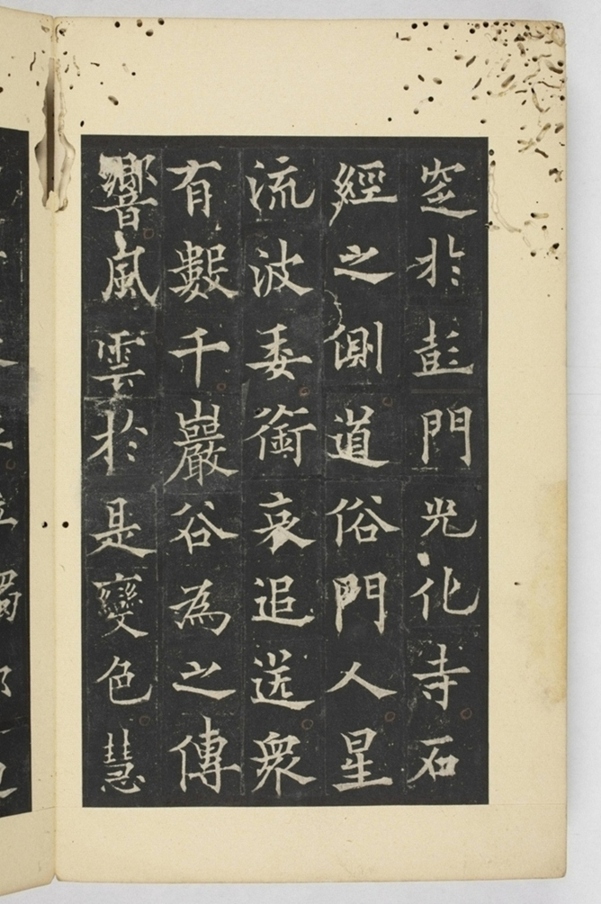 窆於彭門光化寺石
經之側道俗門人星
流波委銜哀追送衆
有數千巖谷為之傳
響風雲於是變色慧